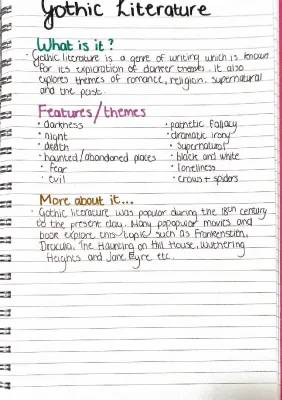 Gothic Literature
What is it?
· Gothic literature is a genre of writing which is known
for its exploration of darker threats. It also
explores themes of romance, religion, supernatural
and the past.
Features/themes
· darkness
· night
· death
· haunted/abandoned places
· fear
· evil
· pathetic fallacy
· dramatic irony
· supernatural
· black and white
· loneliness
· crows + spiders
More about it...
· Gothic literature was popular during the 18th century
to the present day. Many popular movies and
book explore this topic such as Frankenstein,
Dracula, The Haunting on Hill House, Wuthering
Heights and Jane Eyre etc.